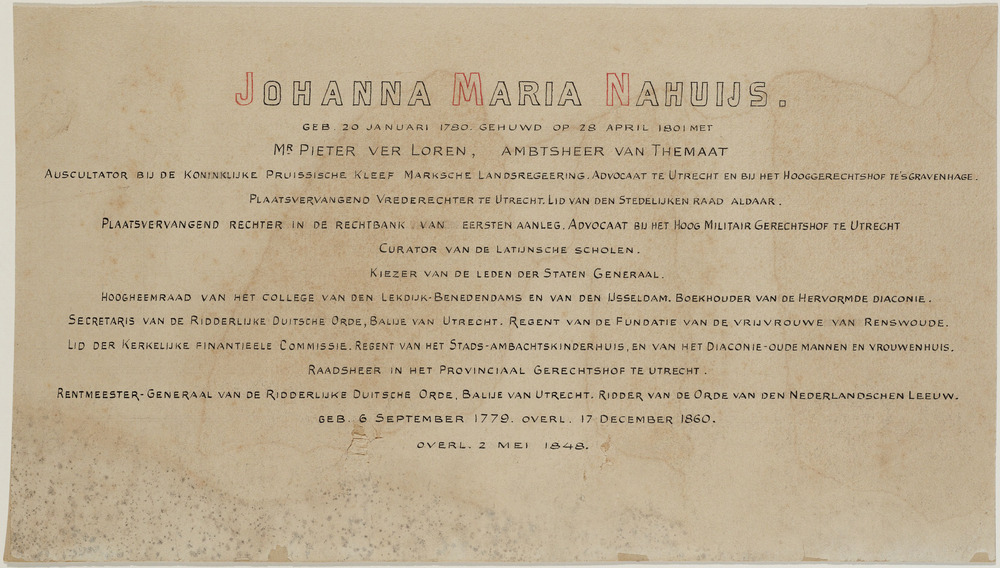 JOHANNA MARIA NAHUIJS.
GEB. 20 JANUARI 1780. GEHUWD OP 28 APRIL 1801 MET
MR PIETER VER LOREN, AMBTSHEER VAN THEMAAT
AUSCULTATOR BIJ DE KONINKLIJKE PRUISSISCHE KLEEF MARKSCHE LANDSREGEERING. ADVOCAAT TE UTRECHT EN BIJ HET HOOGGERECHTSHOF TE'SGRAVENHAGE.
PLAATSVERVANGEND VREDERECHTER TE UTRECHT. LID VAN DEN STEDELIJKEN RAAD ALDAAR.
PLAATSVERVANGEND RECHTER IN DE RECHTBANK VAN EERSTEN AANLEG. ADVOCAAT BIJ HET HOOG MILITAIR GERECHTSHOF TE UTRECHT
CURATOR VAN DE LATIJNSCHE SCHOLEN.
KIEZER VAN DE LEDEN DER STATEN GENERAAL.
HOOGHEEMRAAD VAN HET COLLEGE VAN DEN LEKDIJK-BENEDENDAMS EN VAN DEN IJSSELDAM. BOEKHOUDER VAN DE HERVORMDE DIACONIE.
SECRETARIS VAN DE RIDDERLIJKE DUITSCHE ORDE, BALIJE VAN UTRECHT. REGENT VAN DE FUNDATIE VAN DE VRIJVROUWE VAN RENSWOUDE.
LID DER KERKELIJKE FINANTIEELE COMMISSIE. REGENT VAN HET STADS-AMBACHTSKINDERHUIS, EN VAN HET DIACONIE-OUDE MANNEN EN VROUWENHUIS.
RAADSHEER IN HET PROVINCIAAL GERECHTSHOF TE UTRECHT.
RENTMEESTER-GENERAAL VAN DE RIDDERLIJKE DUITSCHE ORDE, BALIJE VAN UTRECHT. RIDDER VAN DE ORDE VAN DEN NEDERLANDSCHEN LEEUW.
GEB. 6 SEPTEMBER 1779. OVERL. 17 DECEMBER 1860.
OVERL. 2 MEI 1848.